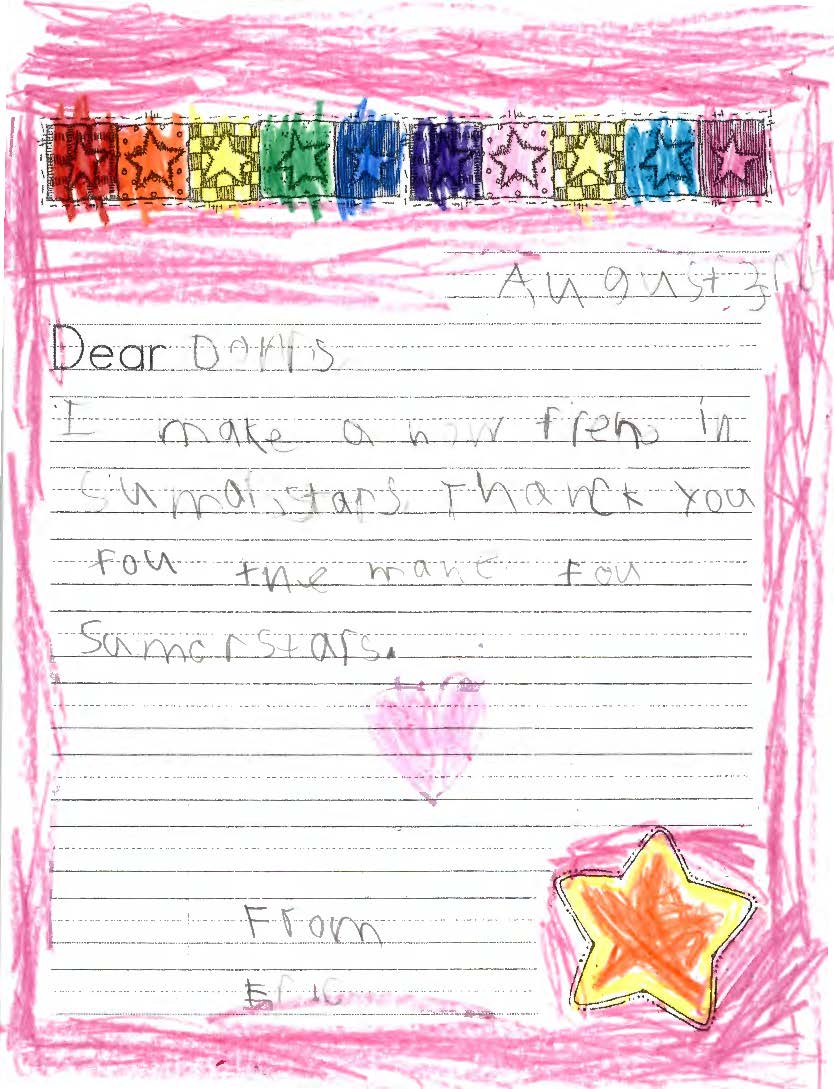 August 3rd
Dear Donrs
I make a now frend in
sumarstars. Thanck you
fou the mane fou
Samorstars.
From
Eric